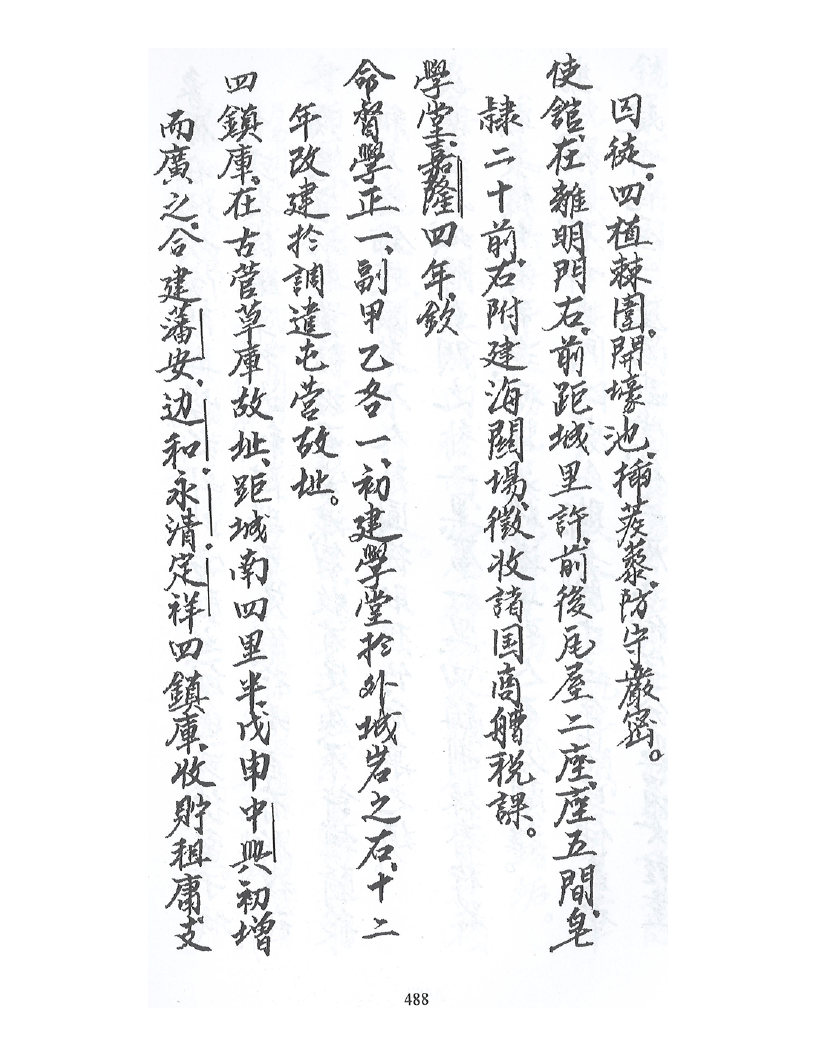 囚徒。四植棘圍。開壕池、揷蒺藜、防守嚴宻。
使館、在離明門右。前距城里許、前後瓦屋二座、座五間、皂
隸二十前、右附建海關場、徵收諸国商艚税課。
學堂、嘉隆四年、欽
命督學正一、副甲乙各一、初建學堂於外城岩之右、十二
年改建於調遣屯營故址。
四鎮庫。在古管草庫故址、距城南四里半、戊申中興初增
而廣之。合建藩安、边和、永清、定祥四鎮庫、收貯租庸支
488